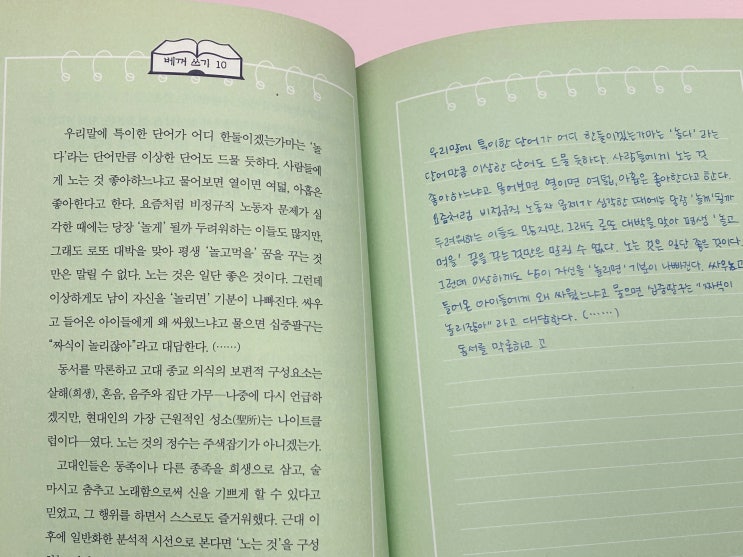 베껴 쓰기 10
우리말에 특이한 단어가 어디 한둘이겠는가마는 ‘놀
다’라는 단어만큼 이상한 단어도 드물 듯하다. 사람들에
게 노는 것 좋아하느냐고 물어보면 열이면 여덟, 아홉은
좋아한다고 한다. 요즘처럼 비정규직 노동자 문제가 심
각한 때에는 당장 ‘놀게’ 될까 두려워하는 이들도 많지만,
그래도 로또 대박을 맞아 평생 ‘놀고먹을’ 꿈을 꾸는 것
만은 말릴 수 없다. 노는 것은 일단 좋은 것이다. 그런데
이상하게도 남이 자신을 ‘놀리면’ 기분이 나빠진다. 싸우
고 들어온 아이들에게 왜 싸웠느냐고 물으면 십중팔구는
“짜식이 놀리잖아”라고 대답한다. (……)
동서를 막론하고 고대 종교 의식의 보편적 구성요소는
살해(희생), 혼음, 음주와 집단 가무—나중에 다시 언급하
겠지만, 현대인의 가장 근원적인 성소(聖所)는 나이트클
럽이다—였다. 노는 것의 정수는 주색잡기가 아니겠는가.
고대인들은 동족이나 다른 종족을 희생으로 삼고, 술
마시고 춤추고 노래함으로써 신을 기쁘게 할 수 있다고
믿었고, 그 행위를 하면서 스스로도 즐거워했다. 근대 이
후에 일반화한 분석적 시선으로 본다면 ‘노는 것’을 구성
우리말에 특이한 단어가 어디 한둘이겠는가마는 '놀다'라는
단어만큼 이상한 단어도 드물 듯하다. 사람들에게 노는 것
좋아하느냐고 물어보면 열이면 여덟, 아홉은 좋아한다고 한다.
요즘처럼 비정규직 노동자 문제가 심각한 때에는 당장 '놀게' 될까
두려워하는 이들도 많지만, 그래도 로또 대박을 맞아 평생 '놀고
먹을' 꿈을 꾸는 것만은 말릴 수 없다. 노는 것은 일단 좋은 것이다.
그런데 이상하게도 남이 자신을 '놀리면' 기분이 나빠진다. 싸우고
들어온 아이들에게 왜 싸웠느냐고 물으면 십중팔구는 "짜식이
놀리잖아"라고 대답한다. (……)
동서를 막론하고 고